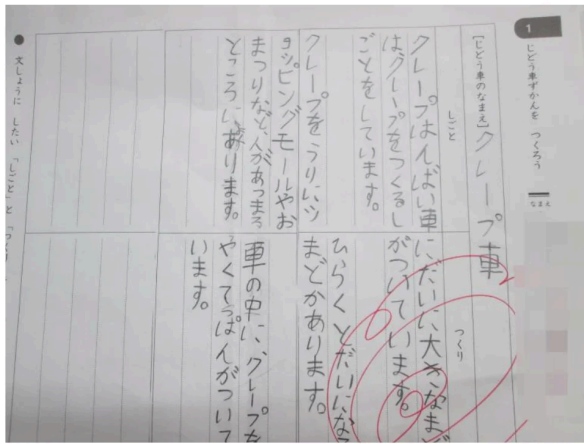 1
じどう車ずかんを つくろう
なまえ
[じどう車のなまえ] クレープ車
しごと
クレープはんばい車
は、クレープをつくるし
ごとをしています。
クレープをうりに、ツ
ョッピングモールやお
まつりなど、人があつまる
ところに、あります。
つくり
にだいに大きなまど
がついています。
ひらくとだいになる
まどかあります。
車の中に、クレープを
やくてっぱんがついて
います。
● 文しょうに したい 「しごと」と 「つくり